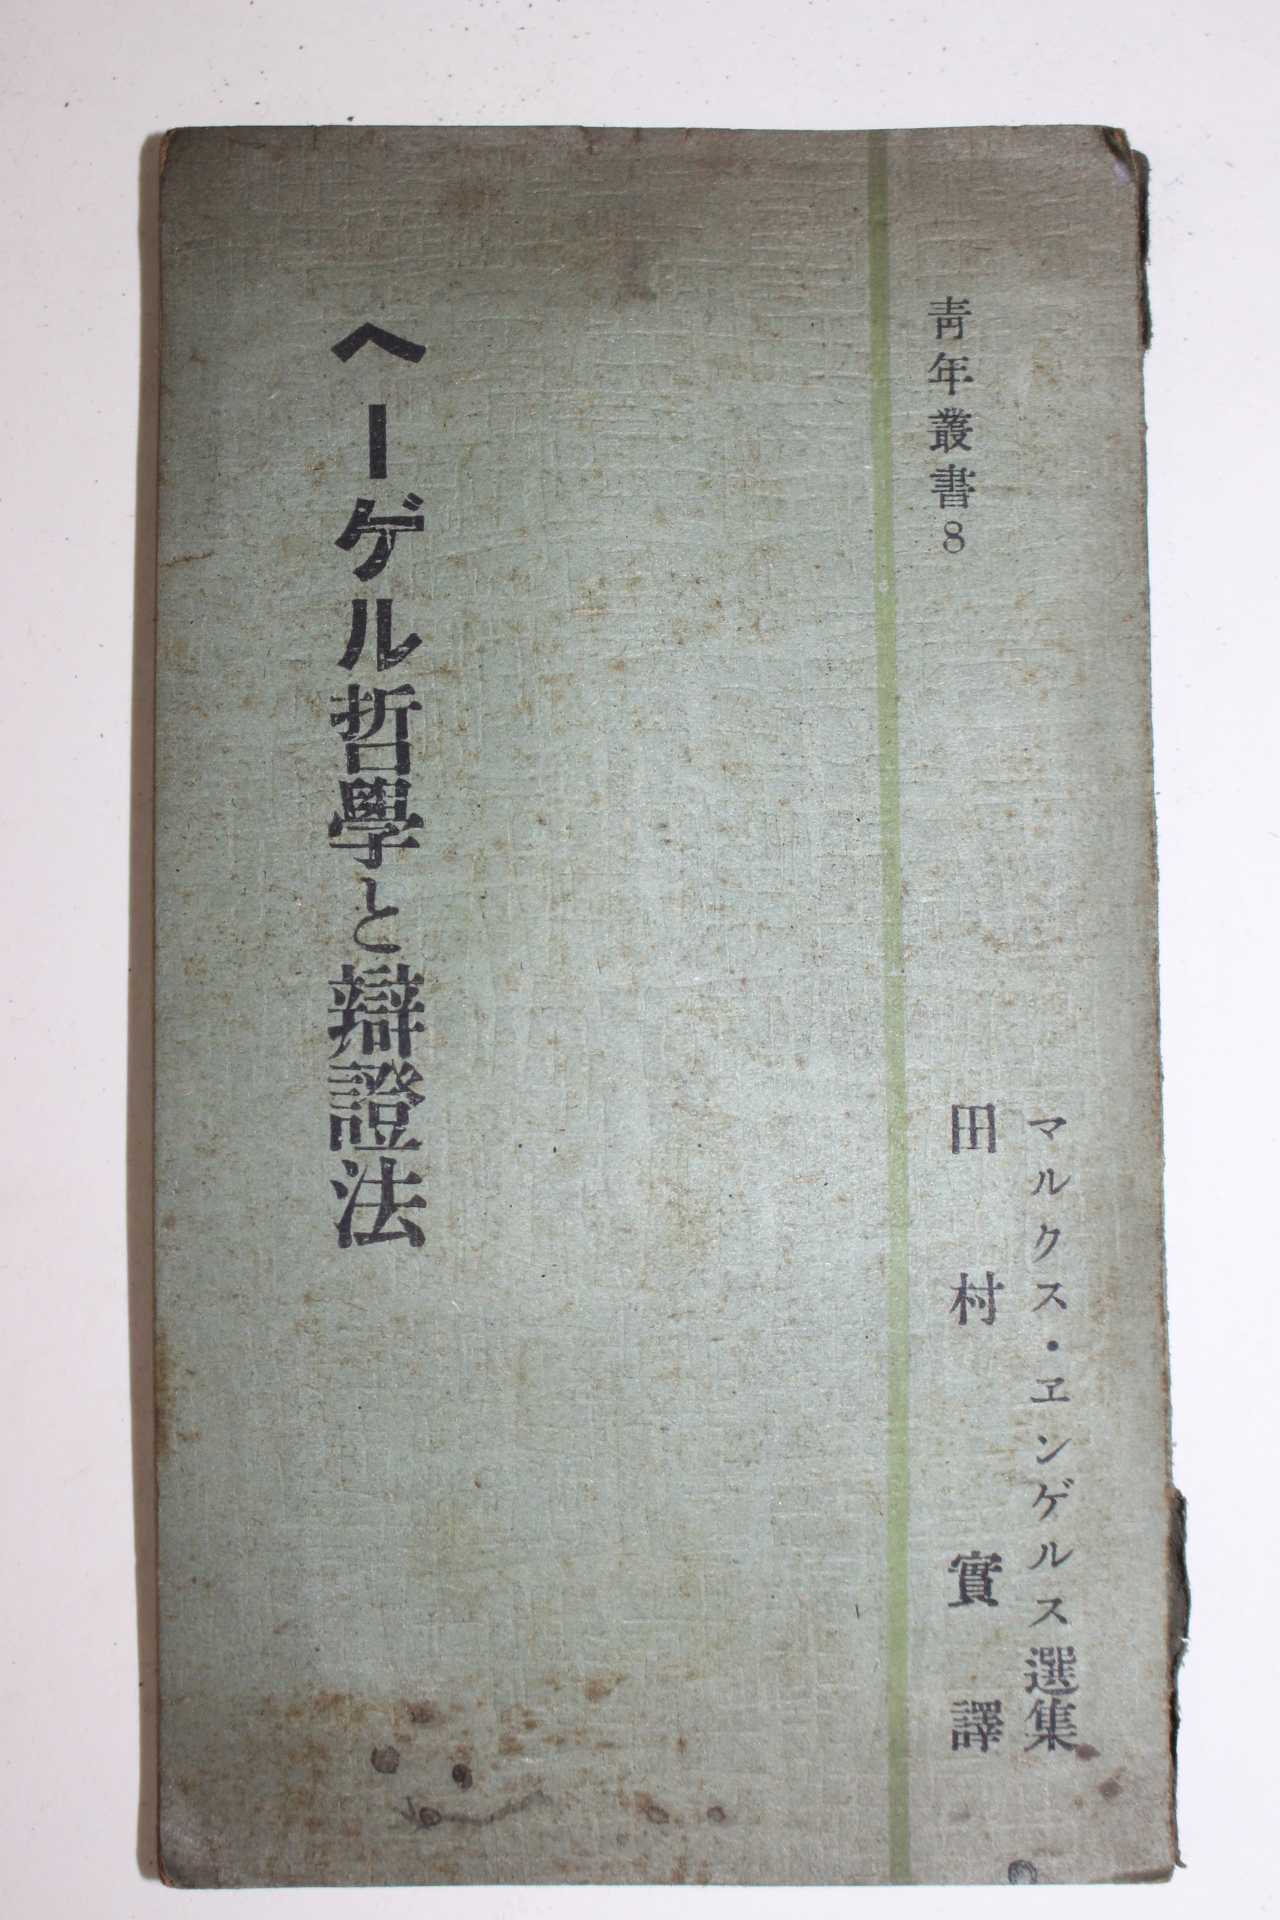 青年叢書8
マルクス・ヱンゲルス選集
田村實譯
ヘーゲル哲學と辯證法